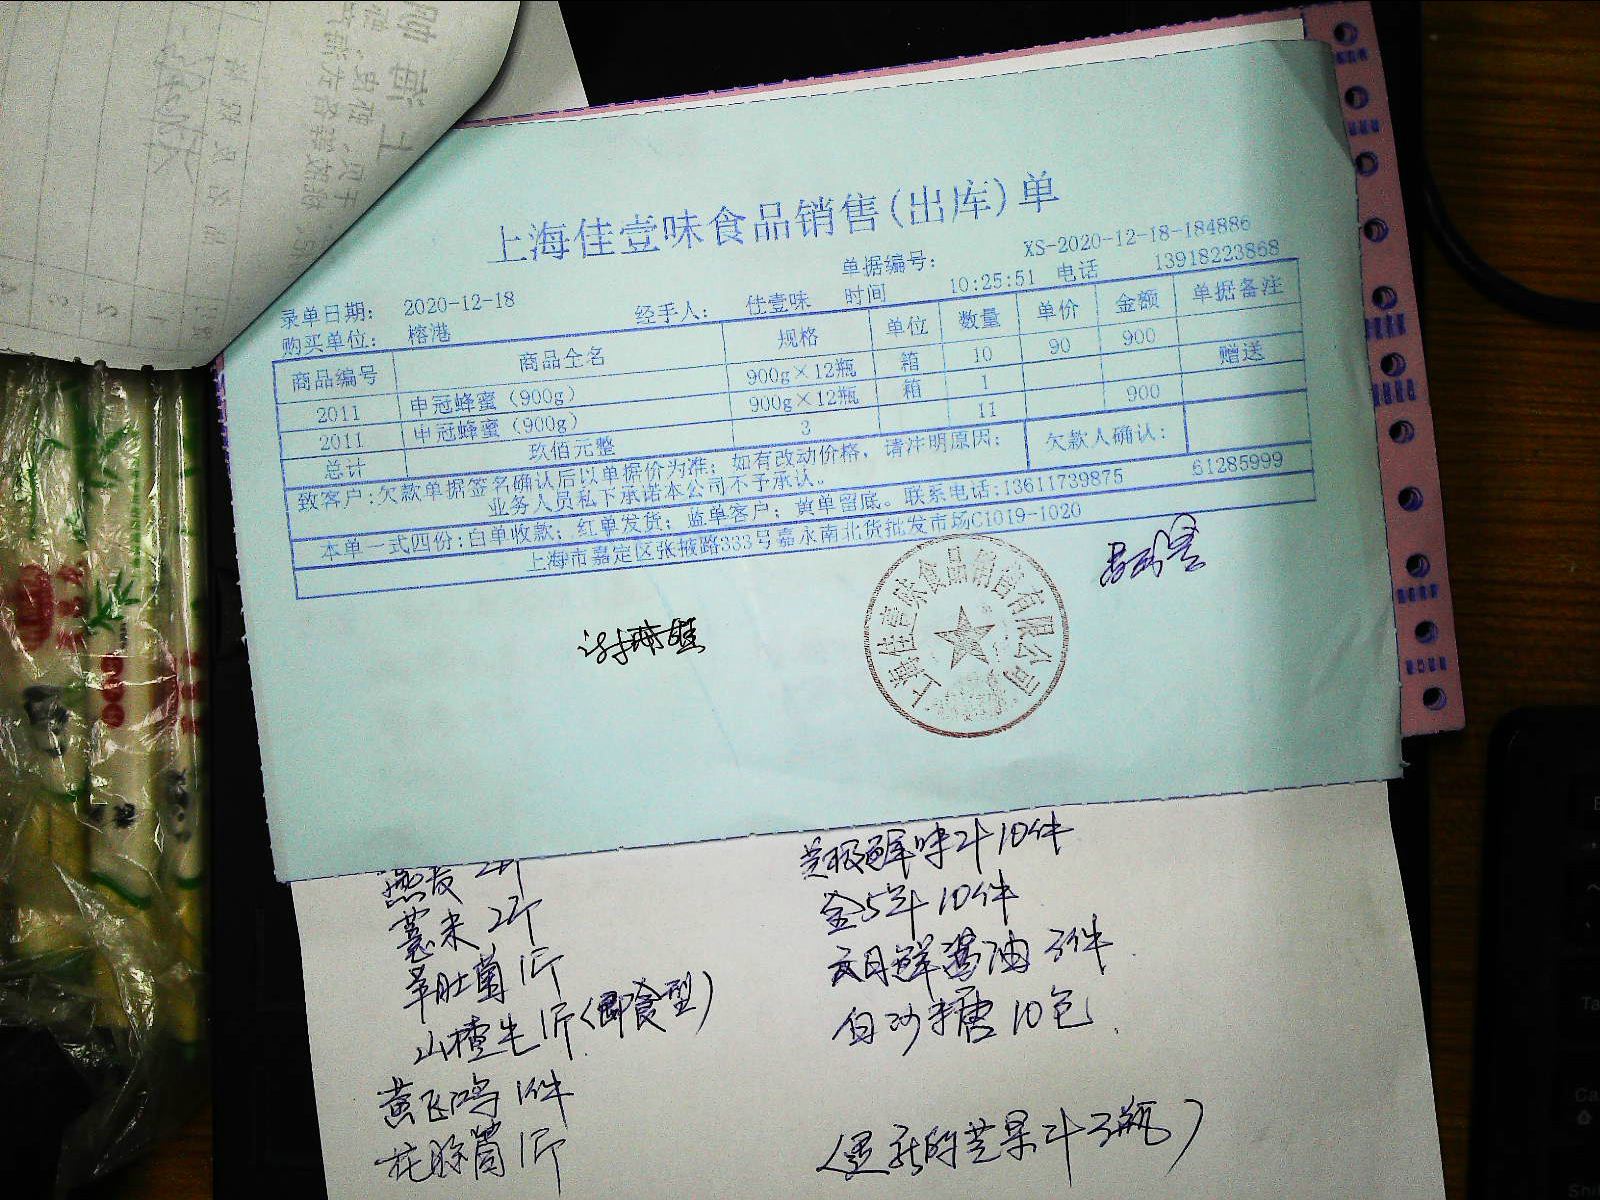 上海佳壹味食品销售(出库)单
单据编号: XS-2020-12-18-184886
录单日期: 2020-12-18 经手人: 佳壹味 时间 10:25:51 电话 13918223868
购买单位: 榕港
商品编号 商品全名 规格 单位 数量 单价 金额 单据备注
2011 申冠蜂蜜(900g) 900g×12瓶 箱 10 90 900
2011 申冠蜂蜜(900g) 900g×12瓶 箱 1 赠送
总计 玖佰元整 3 11 900
致客户:欠款单据签名确认后以单据价为准; 如有改动价格, 请注明原因; 欠款人确认:
业务人员私下承诺本公司不予承认.
本单一式四份:白单收款; 红单发货; 蓝单客户; 黄单留底。联系电话:13611739875 61285999
上海市嘉定区张掖路333号嘉永南北货批发市场C1019-1020
上海佳壹味食品销售有限公司
薏米 2斤
羊肚菌 1斤
山楂 1斤(即食型)
黄飞鸿 1件
1斤
鲜味汁 10件
金5年 10件
六月鲜酱油 3件
白沙糖 10包
芒果汁 3瓶)